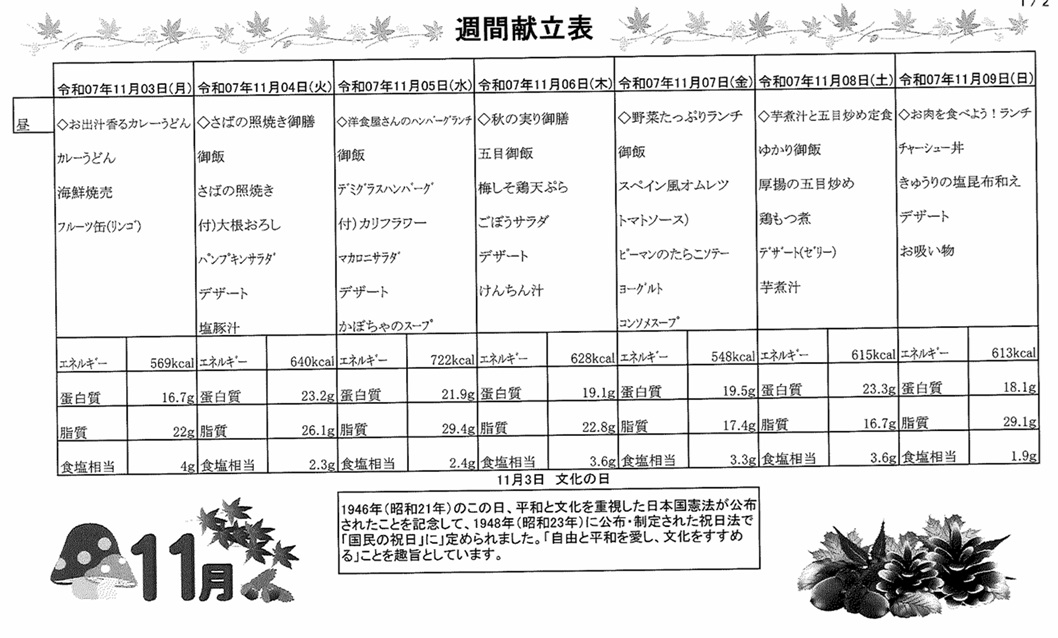 1/2
週間献立表
令和07年11月03日(月) 令和07年11月04日(火) 令和07年11月05日(水) 令和07年11月06日(木) 令和07年11月07日(金) 令和07年11月08日(土) 令和07年11月09日(日)
昼
◇お出汁香るカレーうどん
カレーうどん
海鮮焼売
フルーツ缶(リンゴ)
◇さばの照焼き御膳
御飯
さばの照焼き
付)大根おろし
パンプキンサラダ
デザート
塩豚汁
◇洋食屋さんのハンバーグランチ
御飯
デミグラスハンバーグ
付)カリフラワー
マカロニサラダ
デザート
かぼちゃのスープ
◇秋の実り御膳
五目御飯
梅しそ鶏天ぷら
ごぼうサラダ
デザート
けんちん汁
◇野菜たっぷりランチ
御飯
スペイン風オムレツ
トマトソース)
ピーマンのたらこソテー
ヨーグルト
コンソメスープ
◇芋煮汁と五目炒め定食
ゆかり御飯
厚揚の五目炒め
鶏もつ煮
デザート(ゼリー)
芋煮汁
◇お肉を食べよう！ランチ
チャーシュー丼
きゅうりの塩昆布和え
デザート
お吸い物
エネルギー 569kcal エネルギー 640kcal エネルギー 722kcal エネルギー 628kcal エネルギー 548kcal エネルギー 615kcal エネルギー 613kcal
蛋白質 16.7g 蛋白質 23.2g 蛋白質 21.9g 蛋白質 19.1g 蛋白質 19.5g 蛋白質 23.3g 蛋白質 18.1g
脂質 22g 脂質 26.1g 脂質 29.4g 脂質 22.8g 脂質 17.4g 脂質 16.7g 脂質 29.1g
食塩相当 4g 食塩相当 2.3g 食塩相当 2.4g 食塩相当 3.6g 食塩相当 3.3g 食塩相当 3.6g 食塩相当 1.9g
11月3日 文化の日
1946年(昭和21年)のこの日、平和と文化を重視した日本国憲法が公布
されたことを記念して、1948年(昭和23年)に公布・制定された祝日法で
「国民の祝日」に」定められました。「自由と平和を愛し、文化をすすめ
る」ことを趣旨としています。
11月